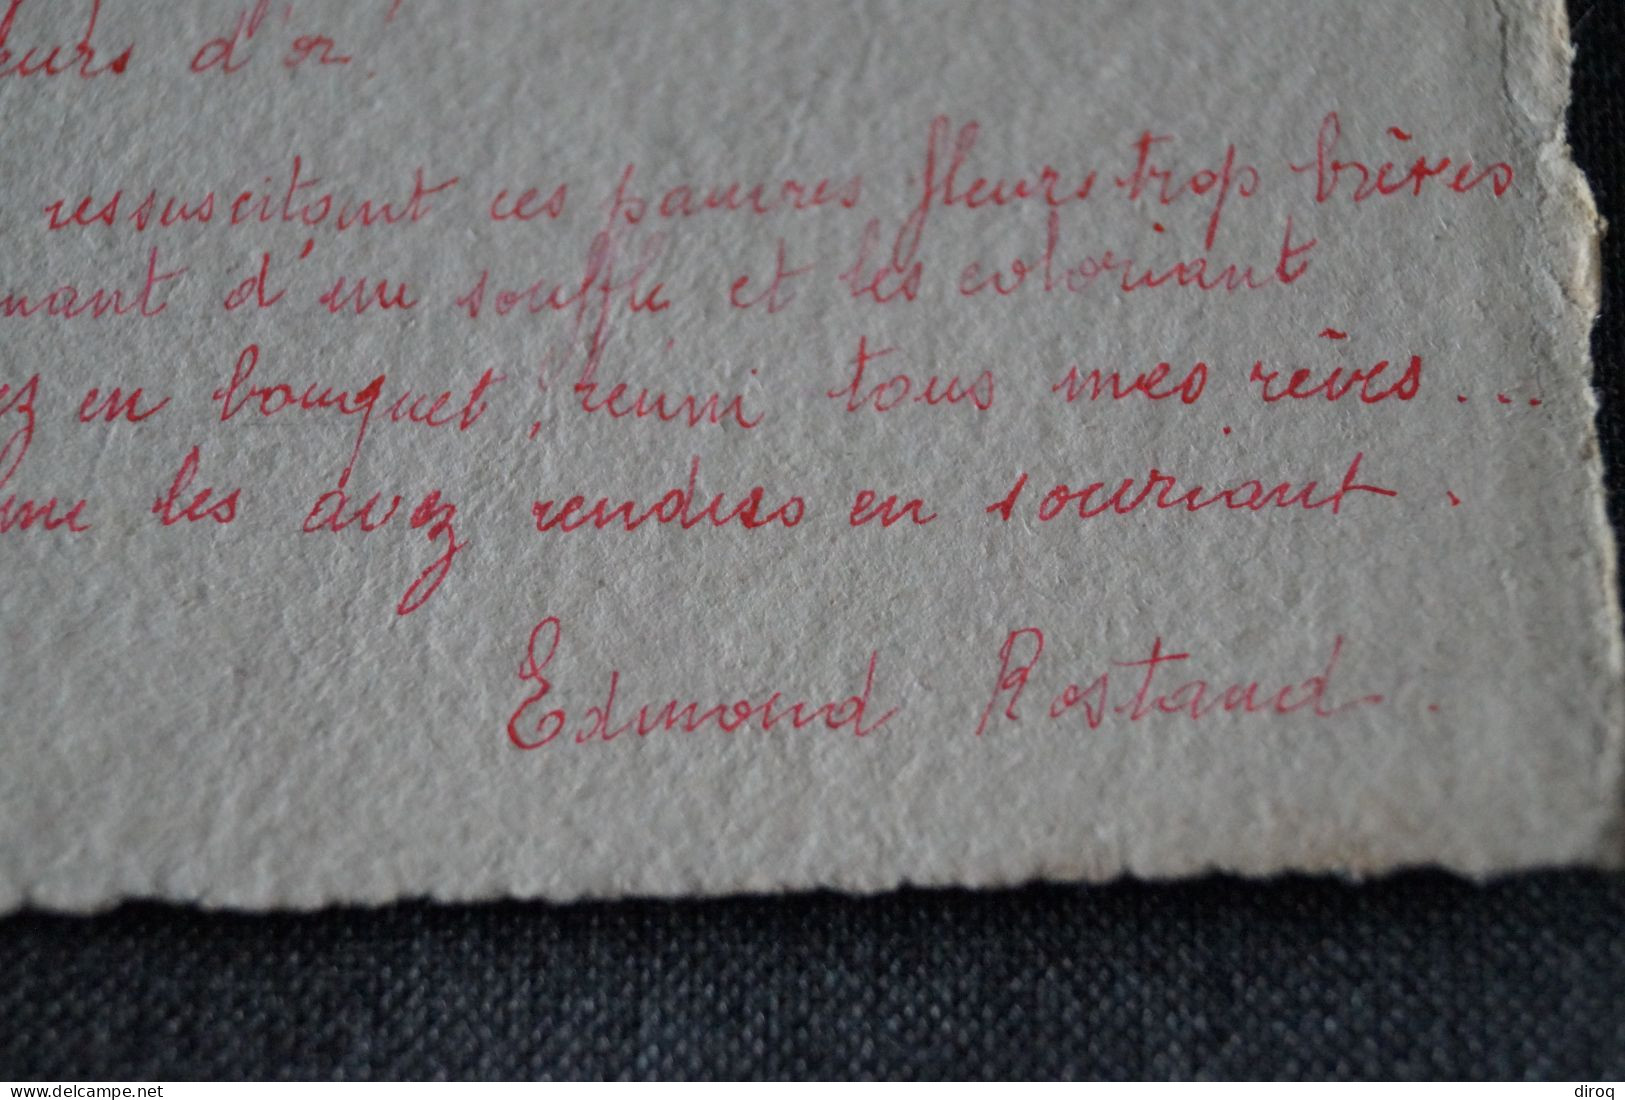 d'or.
ressuscitant ces pauvres fleurs trop brèves
d'un souffle et les coloriant
en bouquet, réuni tous mes rêves...
les avez rendus en souriant.
Edmond Rostand.
www.delcampe.net
diroq